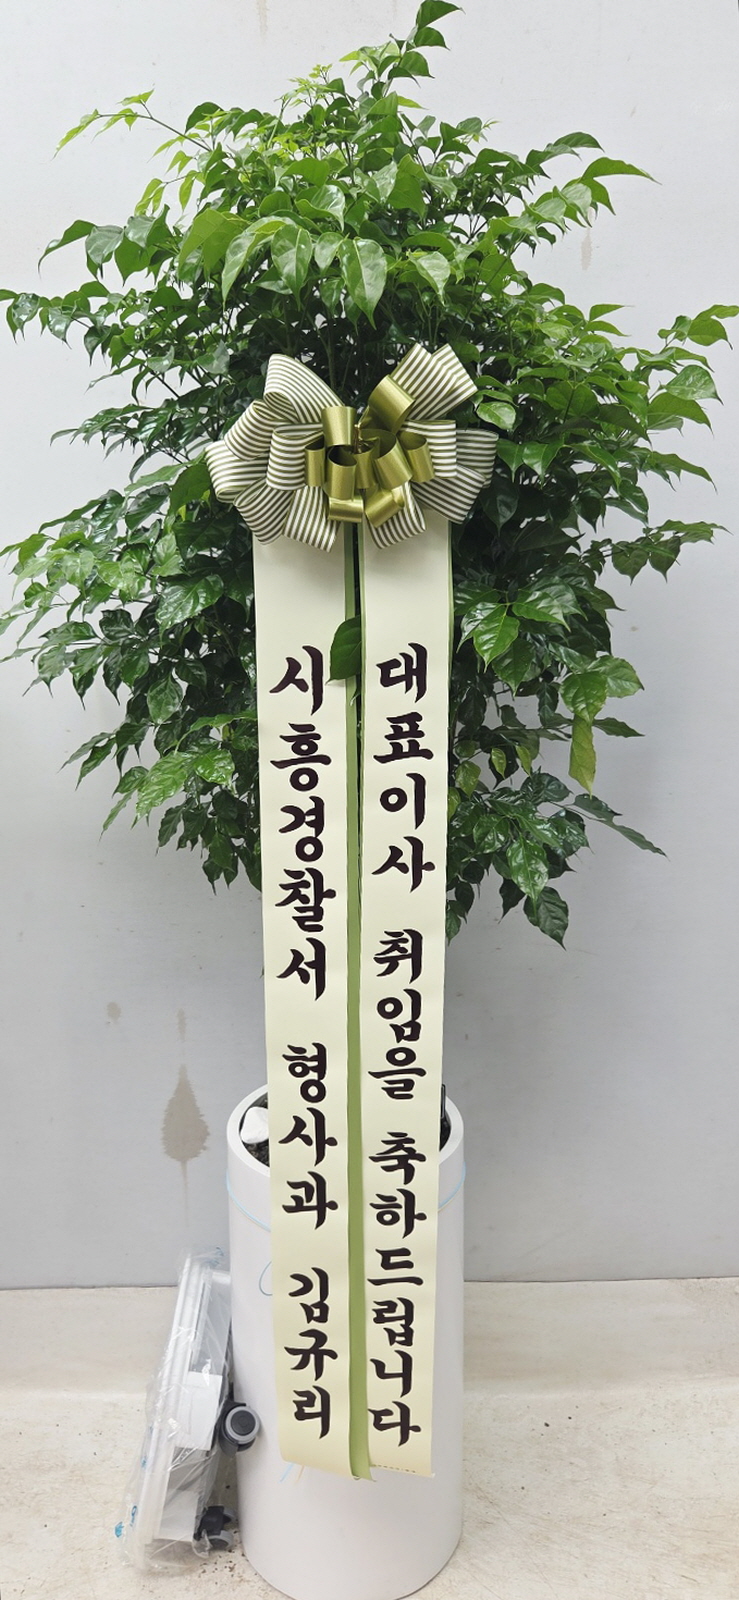 대표이사 취임을 축하드립니다
시흥경찰서 형사과 김규리